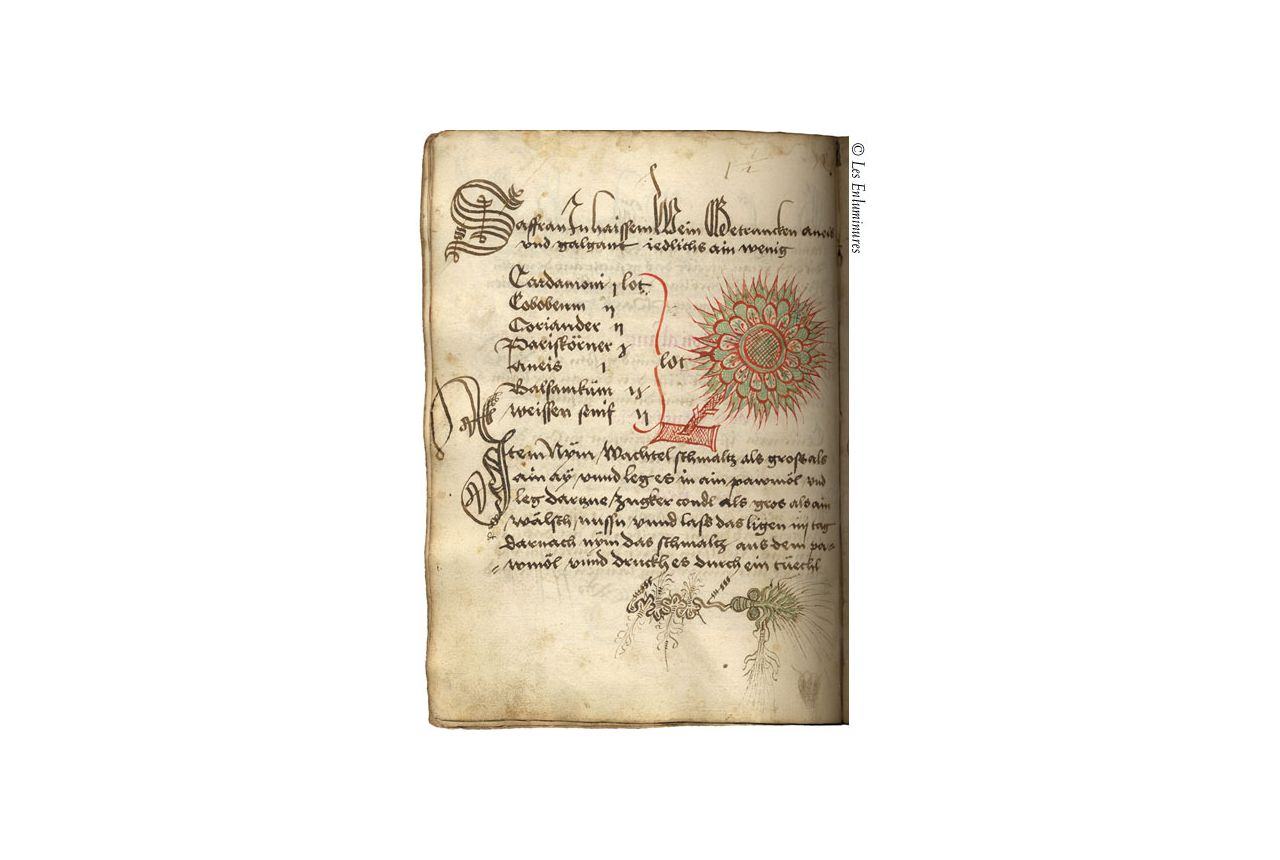 Saffran In haissem Wein Getrancken aneis
vnd galgant iedlichs ain wenig
Cardamoni j lot
Cobobenn ij
Coriander ij
Pariskörner j
Aneis j
Balsamküm ij
weissen senif ij
lot
Item Nÿm Wachtel schmaltz als gross als
ain aÿ vnnd leg es in ain pawmöl vnd
leg darzue zugker condl als gros als ain
wälsch nussn vnnd lass das ligen iiij tag
darnach nÿm das schmaltz aus dem pa-
wmöl vnnd druckh es durch ein tüechl
© Les Enluminures